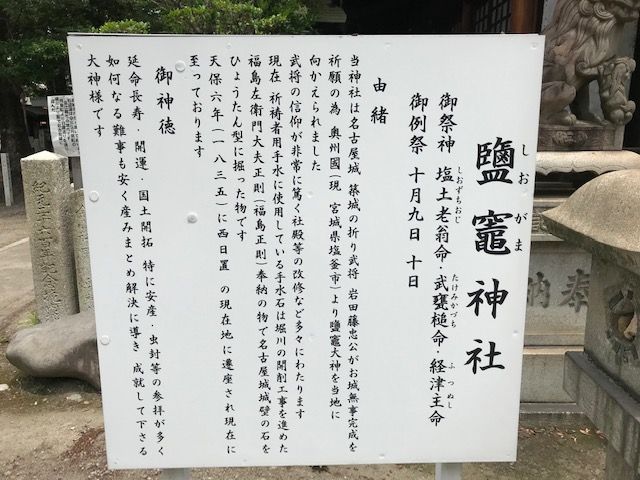 しおがま
鹽竈神社
御祭神 塩土老翁命・武甕槌命・経津主命
しおずちおじ
たけみかづち
ふつぬし
御例祭 十月九日 十日
由緒
当神社は名古屋城 築城の折り武将 岩田藤忠公がお城無事完成を
祈願の為 奥州國(現 宮城県塩釜市)より鹽竈大神を当地に
向かえられました
武将の信仰が非常に篤く社殿等の改修など多々にわたります
現在 祈祷者用手水に使用している手水石は堀川の開削工事を進めた
福島左衛門大夫正則(福島正則)奉納の物で名古屋城城壁の石を
ひょうたん型に掘った物です
天保六年(一八三五)に西日置 の現在地に遷座され現在に
至っております
御神徳
延命長寿・開運・国土開拓 特に安産・虫封等の参拝が多く
如何なる難事も安く産みまとめ解決に導き 成就して下さる
大神様です
奉納